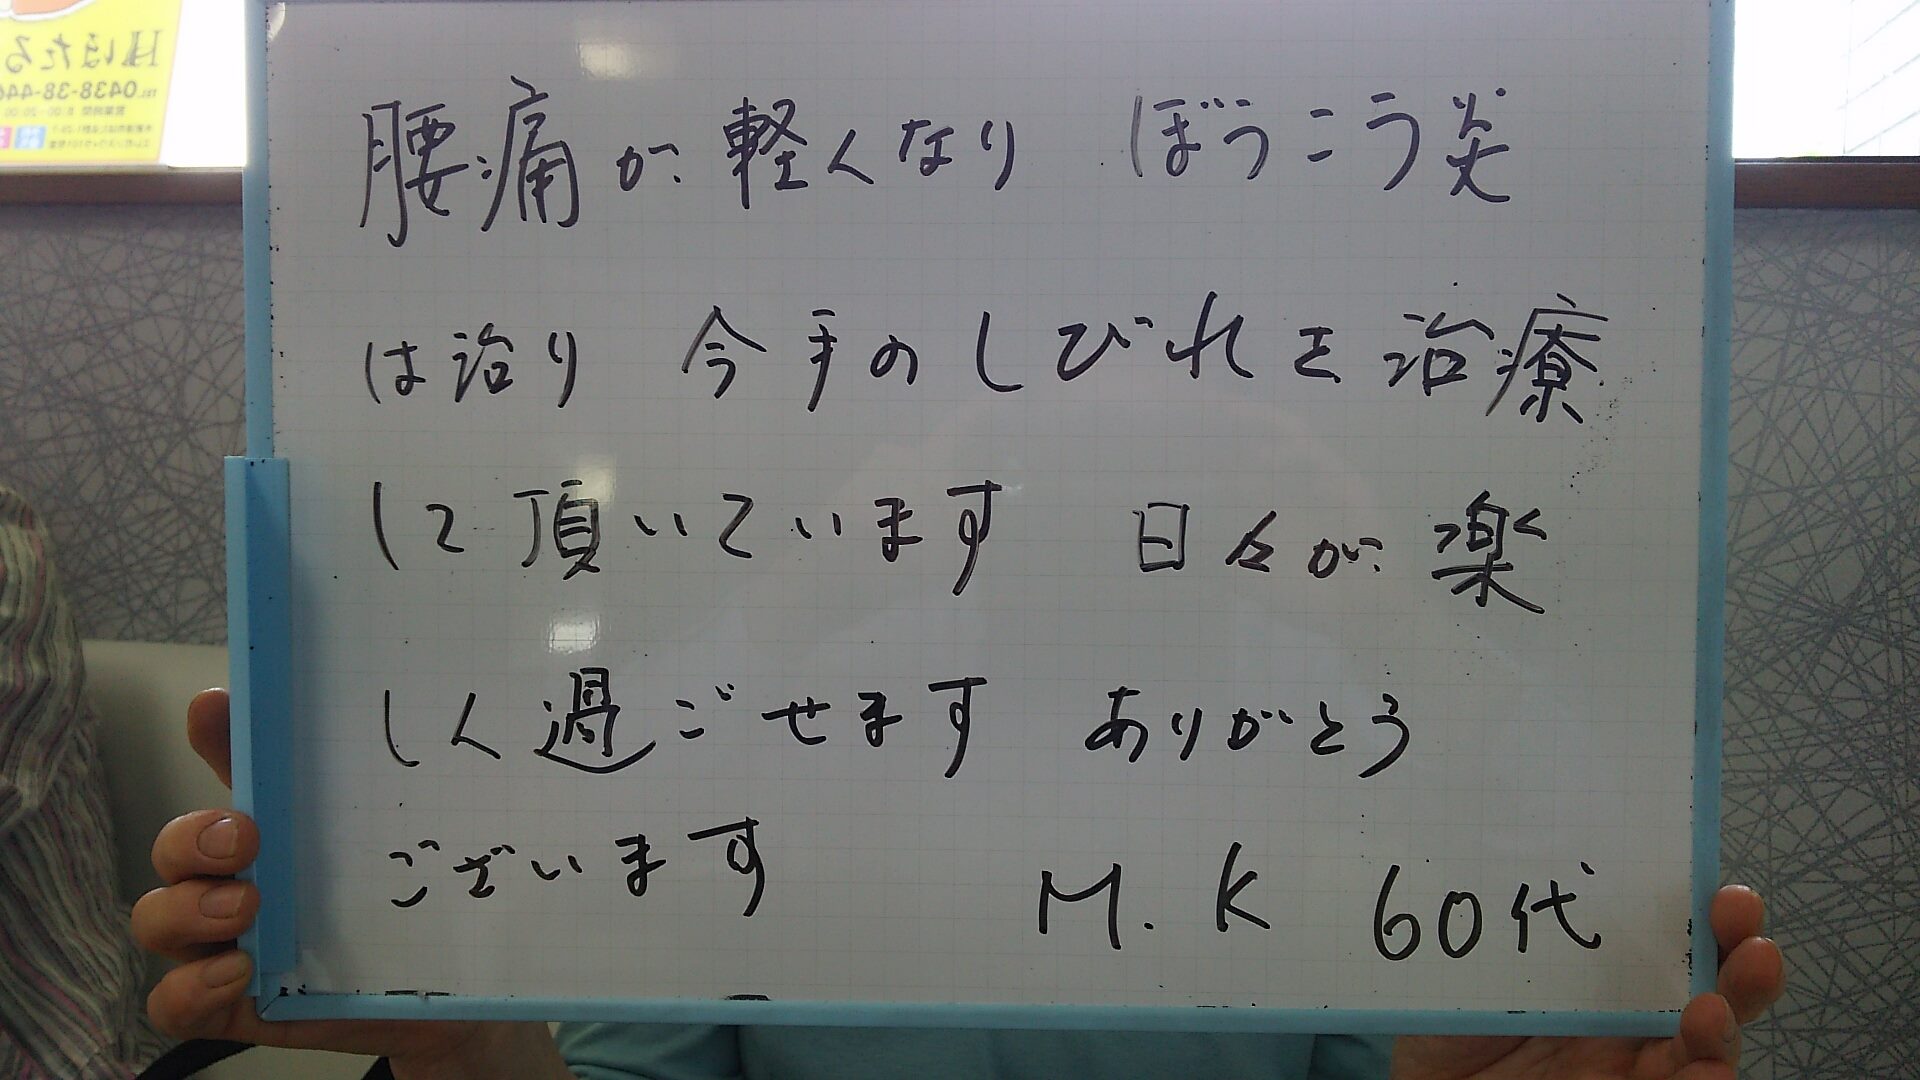 腰痛が軽くなり ぼうこう炎
は治り 今手のしびれを治療
して頂いています 日々が楽
しく過ごせます ありがとう
ございます M.K 60代
ほたる
TEL.0438-38-446